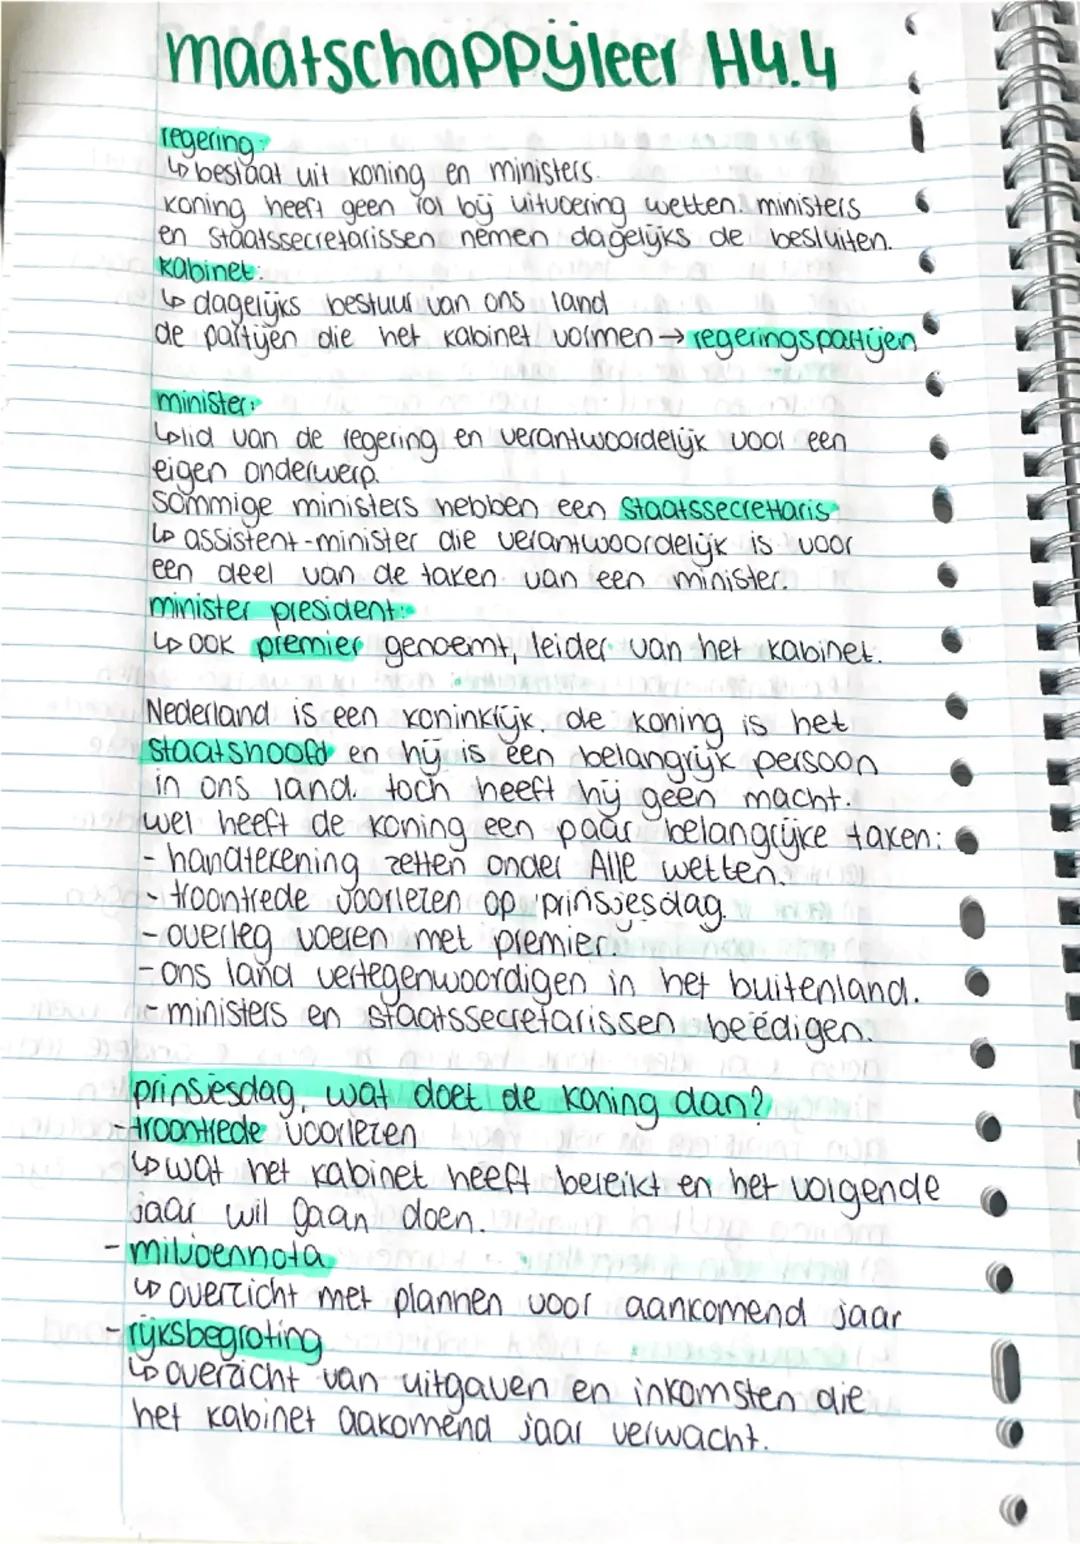 maatschappijleer H4.4
regering:
↳ bestaat uit koning en ministers.
koning heeft geen rol bij uitvoering wetten. ministers
en staatssecretarissen nemen dagelijks de besluiten.
kabinet:
↳ dagelijks bestuur van ons land
de partijen die het kabinet vormen → regeringspartijen
minister:
↳ lid van de regering en verantwoordelijk voor een
eigen onderwerp.
sommige ministers hebben een staatssecretaris
↳ assistent-minister die verantwoordelijk is voor
een deel van de taken van een minister.
minister president:
↳ ook premier genoemt, leider van het kabinet.
Nederland is een koninkrijk. de koning is het
staatshoofd en hij is een belangrijk persoon
in ons land. toch heeft hij geen macht.
wel heeft de koning een paar belangrijke taken:
- handtekening zetten onder Alle wetten.
- troontrede voorlezen op prinsjesdag.
- overleg voeren met premier.
- ons land vertegenwoordigen in het buitenland.
- ministers en staatssecretarissen beëdigen.
prinsjesdag, wat doet de koning dan?
- troontrede voorlezen
↳ wat het kabinet heeft bereikt en het volgende
jaar wil gaan doen.
- miljoennota
↳ overzicht met plannen voor aankomend jaar
- rijksbegroting
↳ overzicht van uitgaven en inkomsten die
het kabinet aakomend jaar verwacht.